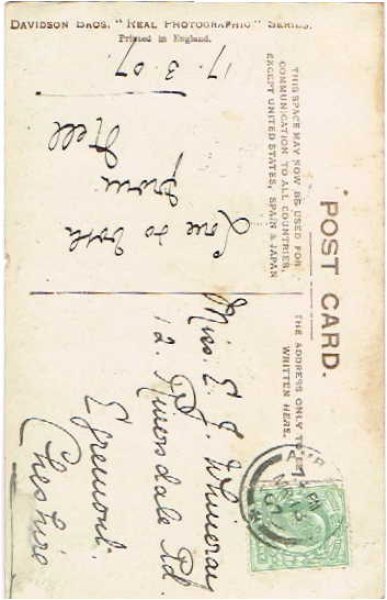 DAVIDSON BROS. "REAL PHOTOGRAPHIC" SERIES.
Printed in England.
POST CARD.
THIS SPACE MAY NOW BE USED FOR
COMMUNICATION TO ALL COUNTRIES,
EXCEPT UNITED STATES, SPAIN & JAPAN
THE ADDRESS ONLY TO BE
WRITTEN HERE.
17.3.07
Love to both
from
Nell
Miss. E. J. Whineray
12. Rd.
Egremont.
Cheshire